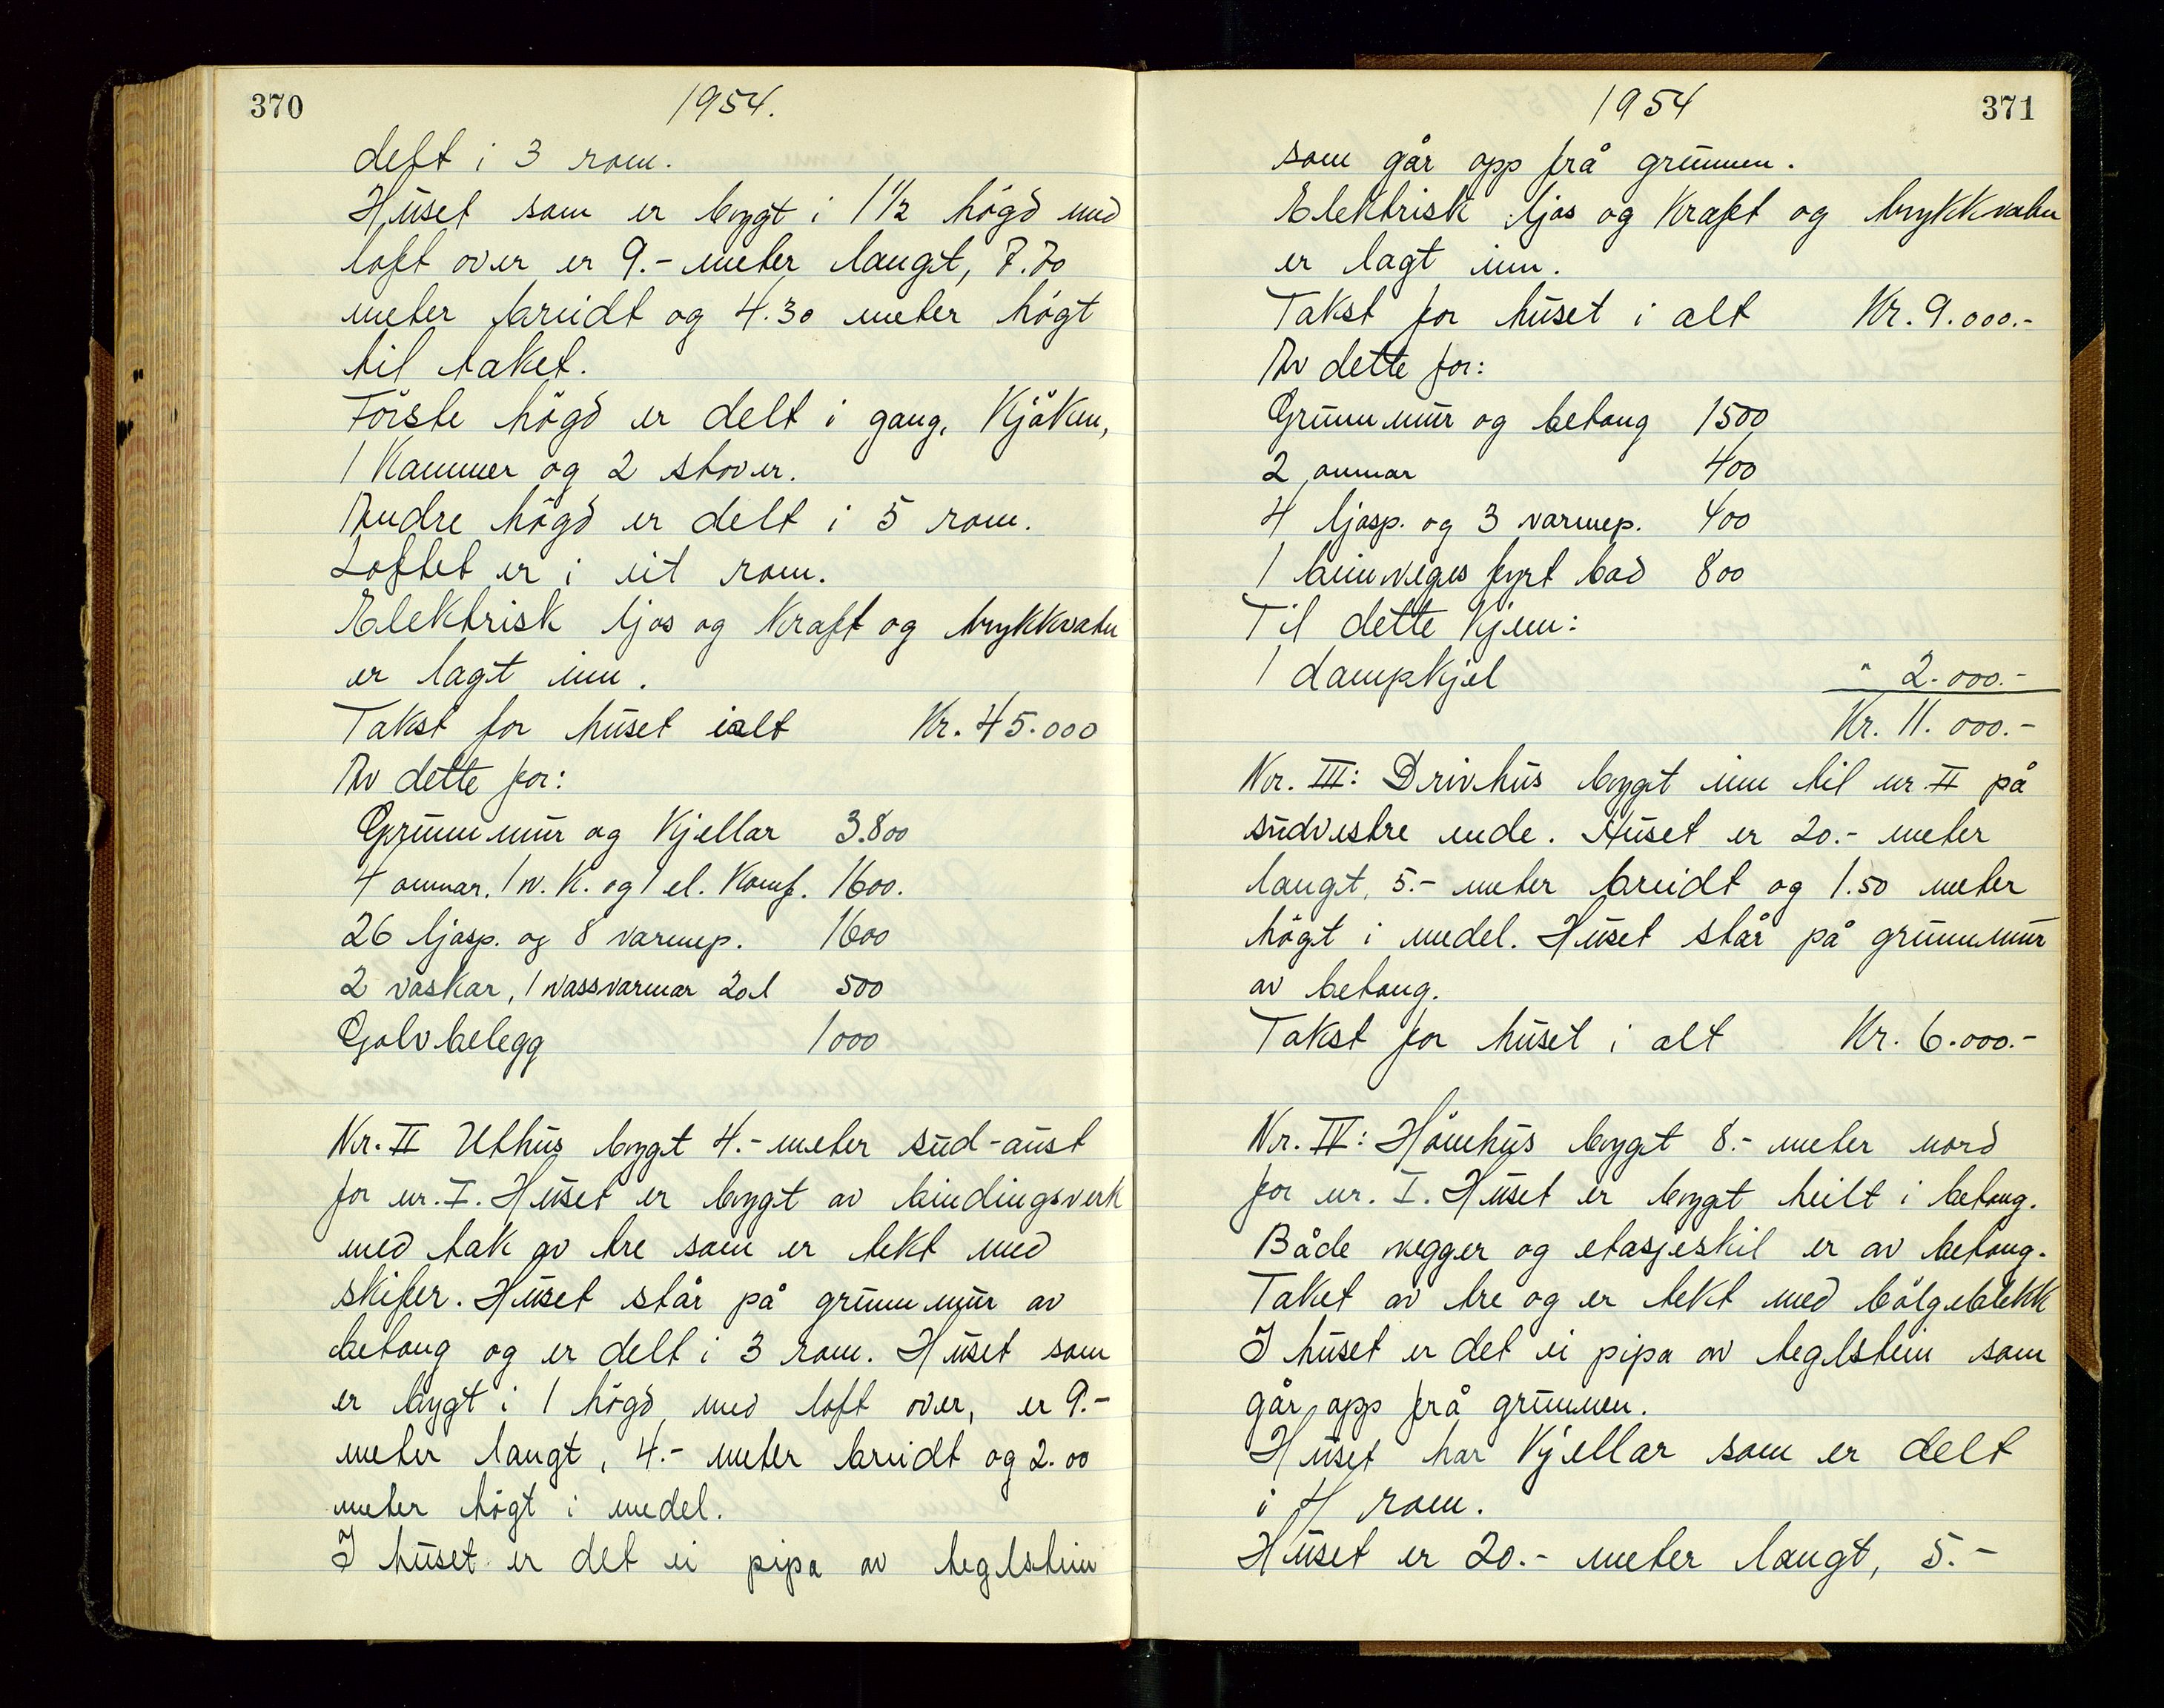 370
1954.
delt i 3 rom.
Huset som er bygt i 1 1/2 högd med
loft over er 9.- meter langt, 7.70
meter breidt og 4.30 meter högt
til taket.
Förste högd er delt i gang, kjöken,
1 kammer og 2 stover.
Andre högd er delt i 5 rom.
Loftet er i eit rom.
Elektrisk ljos og kraft og trykkvatn
er lagt inn.
Takst for huset ialt Kr. 45.000
Av dette for:
Grunnmur og kjellar 3.800
4 omnar, 1 v. k. og 1 el. komf. 1600.
26 ljosp. og 8 varmep. 1600
2 vaskar, 1 vassvarmar 20 l 500
Golvbelegg 1000
Nr. II Uthus bygt 4.- meter süd-aust
for nr. I. Huset er bygt av bindingsverk
med tak av tre som er tekt med
skifer. Huset står på grunnmur av
betong og er delt i 3 rom. Huset som
er bygt i 1 högd med loft over, er 9.-
meter langt, 4.- meter breidt og 2.00
meter högt i medel.
I huset er det ei pipa av teglstein
1954
371
som går opp frå grunnen.
Elektrisk ljos og kraft og trykkvatn
er lagt inn.
Takst for huset i alt Kr. 9.000.-
Av dette for:
Grunnmur og betong 1500
2 omnar 400
4 ljosp. og 3 varmep. 400
1 beinveges fyrt bad 800
Til dette kjem:
1 dampkjel " 2.000.-
Kr. 11.000.-
Nr. III: Drivhus bygt inn til nr. II på
südvestre ende. Huset er 20.- meter
langt, 5.- meter breidt og 1.50 meter
högt i medel. Huset står på grunnmur
av betong.
Takst for huset i alt Kr. 6.000.-
Nr. IV: Hönehus bygt 8.- meter nord
for nr. I. Huset er bygt heilt i betong.
Både vegger og etasjeskil er av betong.
Taket av tre og er tekt med bölgeblekk
I huset er det ei pipa av teglstein som
går opp frå grunnen.
Huset har kjellar som er delt
i 4 rom.
Huset er 20.- meter langt, 5.-